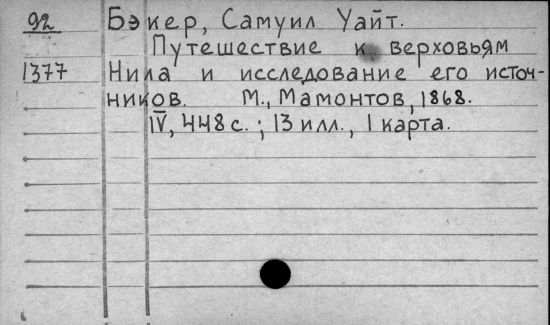 92 Бэкер, Самуил Уайт.
Путешествие к верховьям
1377 Нила и исследование его источ-
ников. М., Мамонтов, 1868.
IV, 448 с.; 13 илл., 1 карта.